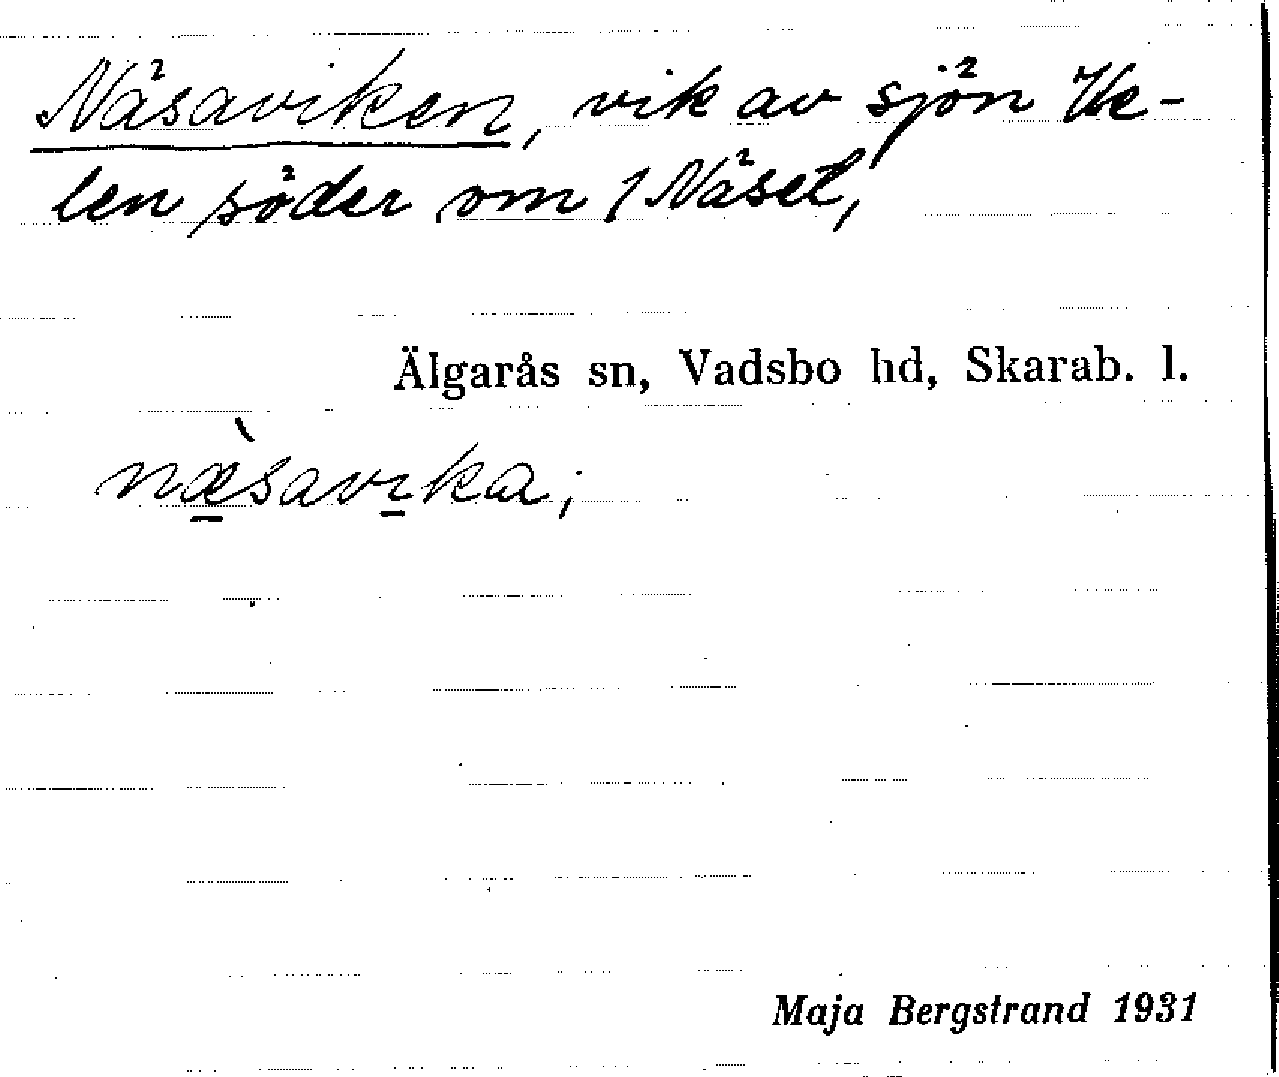 Näsaviken, vik av sjön Ve-
len söder om 1 Näset,
Älgarås sn, Vadsbo hd, Skarab. l.
næ̠̀savi̠ka;
Maja Bergstrand 1931